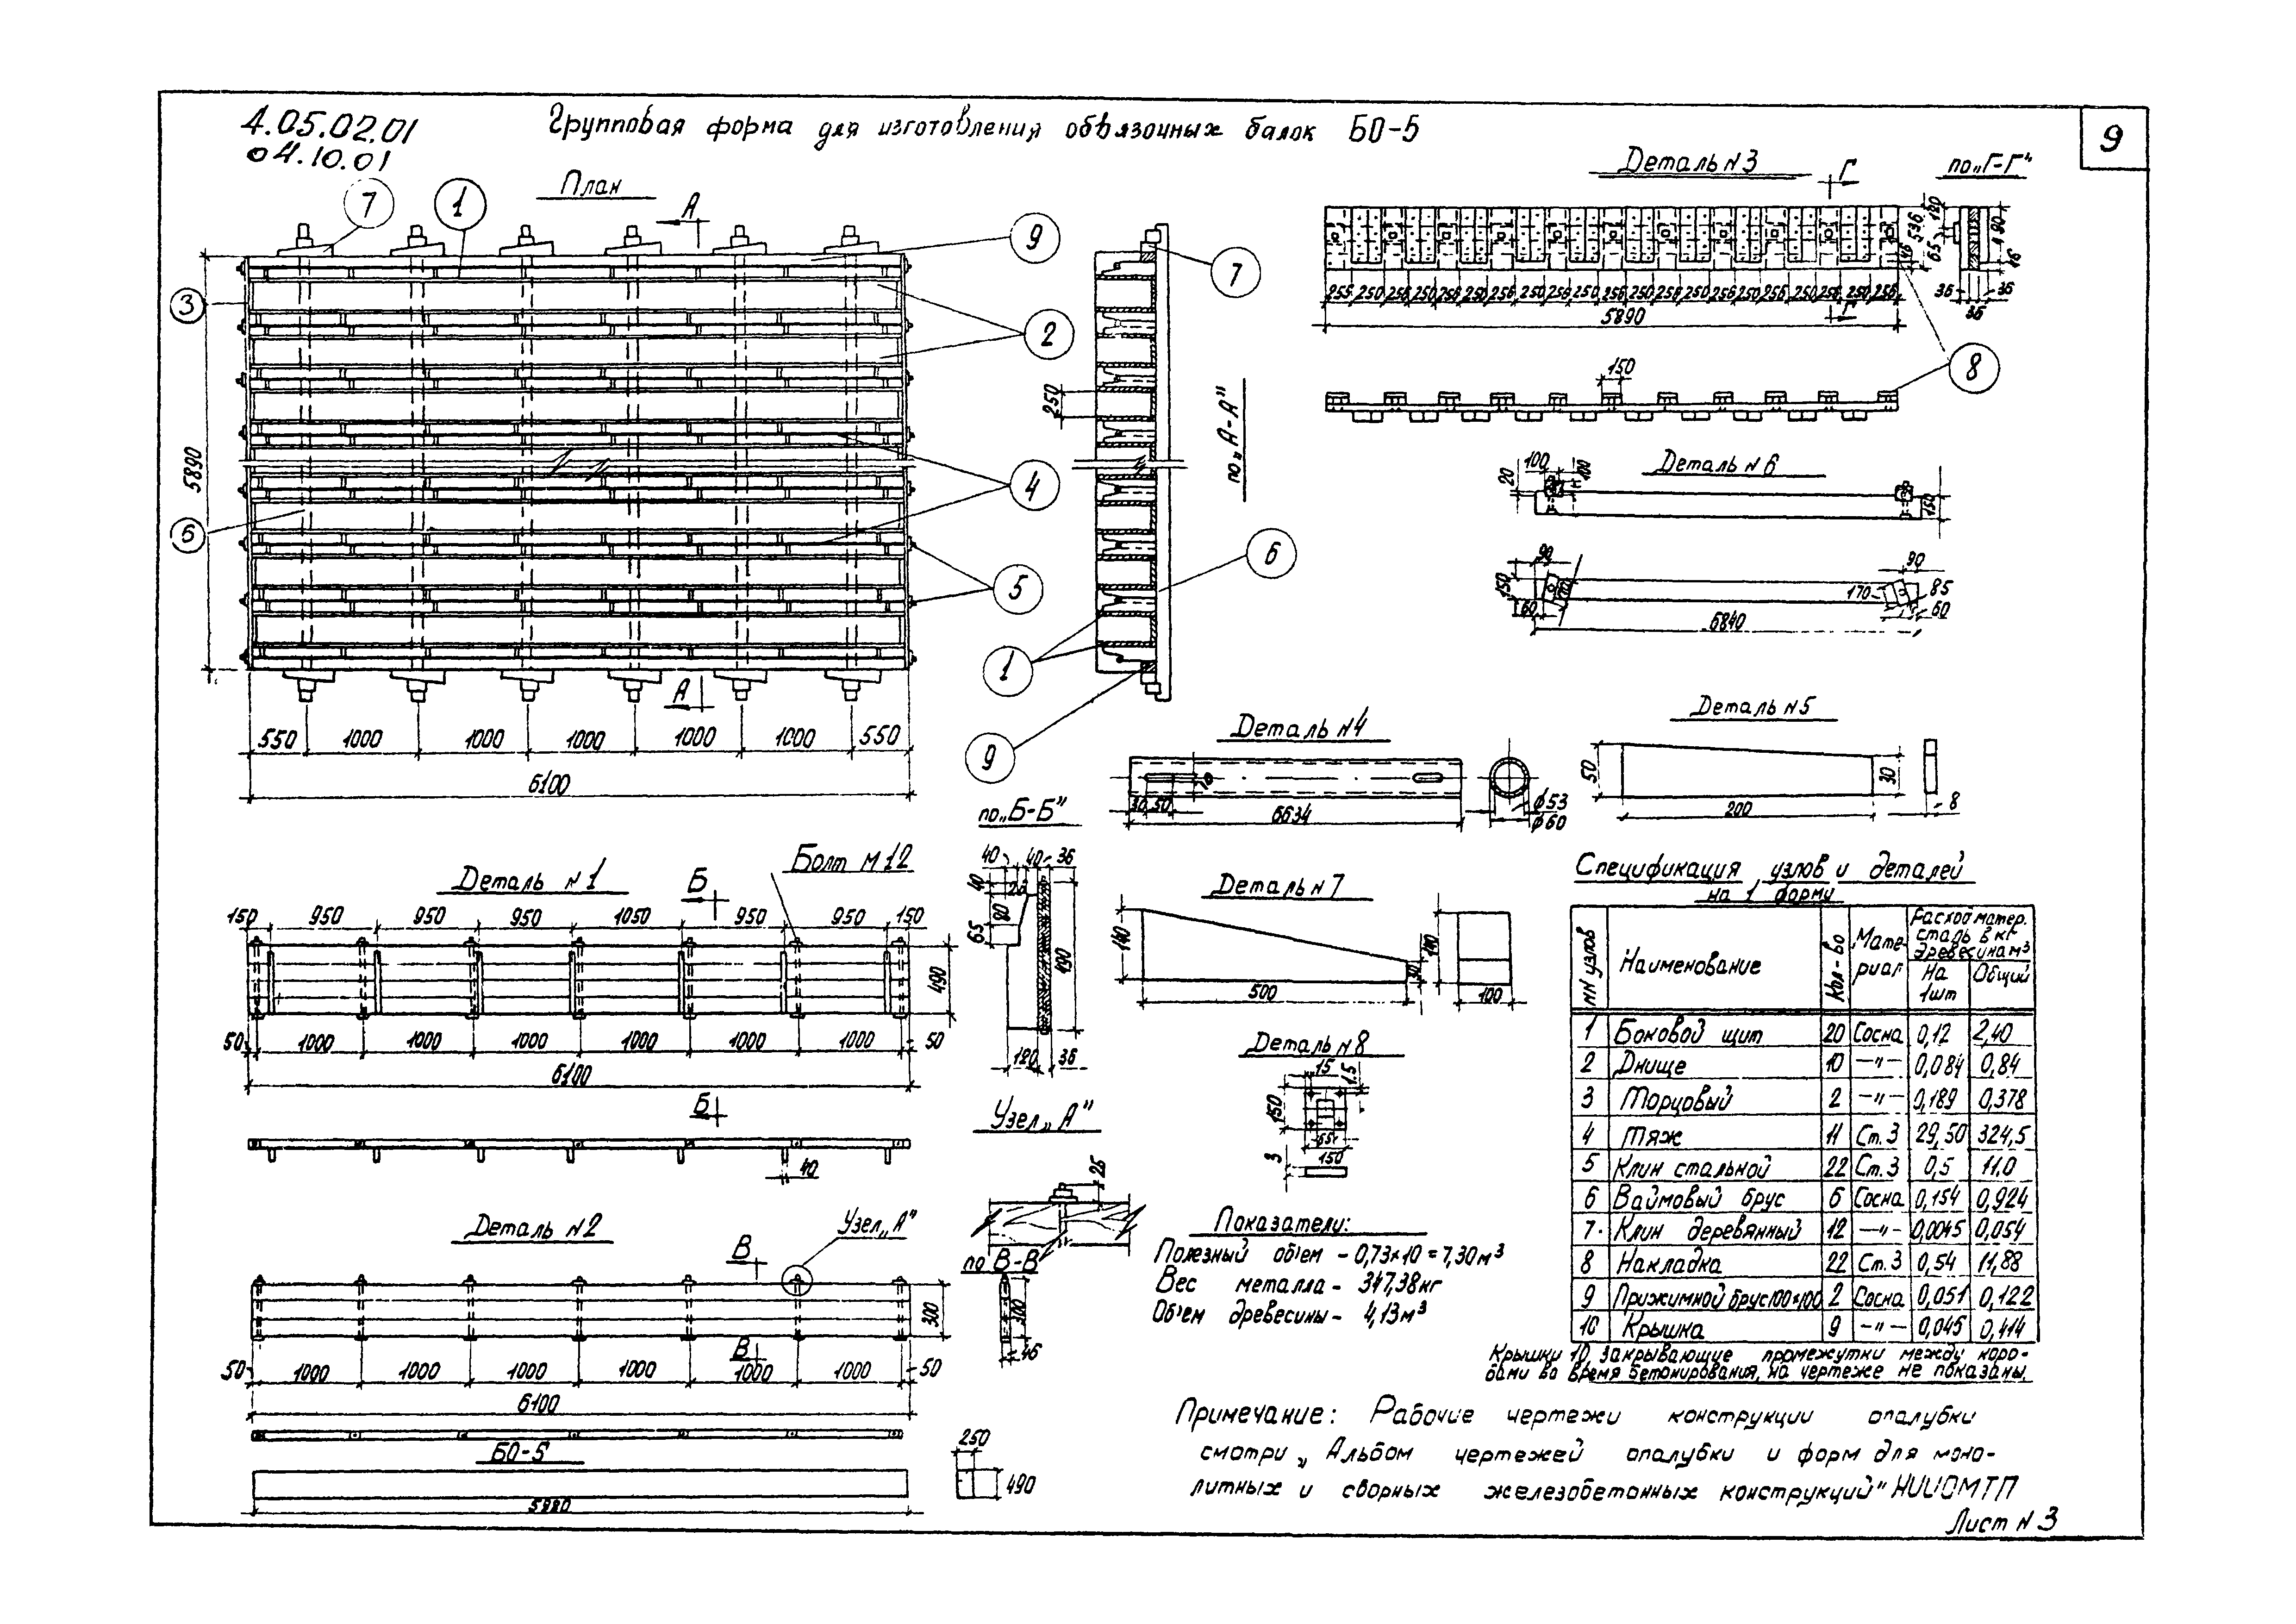 4.05.02.01
04.10.01
Групповая форма для изготовления обвязочных балок БО-5
9
План
7
1
А
9
3
2
4
6
5
5890
А
550 1000 1000 1000 1000 1000 550
6100
7
250
по „А-А"
6
1
9
Деталь N3
Г
по „Г-Г"
255 250 256 250 256 250 256 250 256 250 256 250 256 250 256 250 256 250 256 250 256
5890
Г
536
46
120
65
490
16
36 36
36
150
8
Деталь N6
20
100
100
150
90
150
60
170
90
85
60
6840
Деталь N4
30 50
6634
ϕ53
ϕ60
Деталь N5
50
30
200
8
Деталь N1
Б
Болт М12
150 950 950 950 1050 950 950 150
490
50 1000 1000 1000 1000 1000 1000 50
6100
Б
40
по „Б-Б"
40 40 36
40
80
65
490
120 36
Деталь N7
140
30
500
140
100
Деталь N8
15
15
150
65
150
3
Узел „А"
25
Деталь N2
Узел „А"
В
300
В
50 1000 1000 1000 1000 1000 1000 50
6100
по В-В
300
46
БО-5
5980
250
490
Показатели:
Полезный объем - 0,73×10 = 7,30м³
Вес металла - 347,38кг
Объем древесины - 4,13м³
Спецификация узлов и деталей
на 1 форму
NN узлов Наименование Кол-во Материал Расход матер. сталь в кг древесина м³
На 1шт Общий
1 Боковой щит 20 Сосна 0,12 2,40
2 Днище 10 —"— 0,084 0,84
3 Торцовый 2 —"— 0,189 0,378
4 Тяж 11 Ст.3 29,50 324,5
5 Клин стальной 22 Ст.3 0,5 11.0
6 Ваймовый брус 6 Сосна 0,154 0,924
7 Клин деревянный 12 —"— 0,0045 0,054
8 Накладка 22 Ст.3 0,54 11,88
9 Прижимной брус 100×100 2 Сосна 0,051 0,122
10 Крышка 9 —"— 0,045 0,414
Крышки 10 закрывающие промежутки между коро-
бами во время бетонирования, на чертеже не показаны.
Примечание: Рабочие чертежи конструкции опалубки
смотри „Альбом чертежей опалубки и форм для моно-
литных и сборных железобетонных конструкций" НИИОМТП
Лист N 3